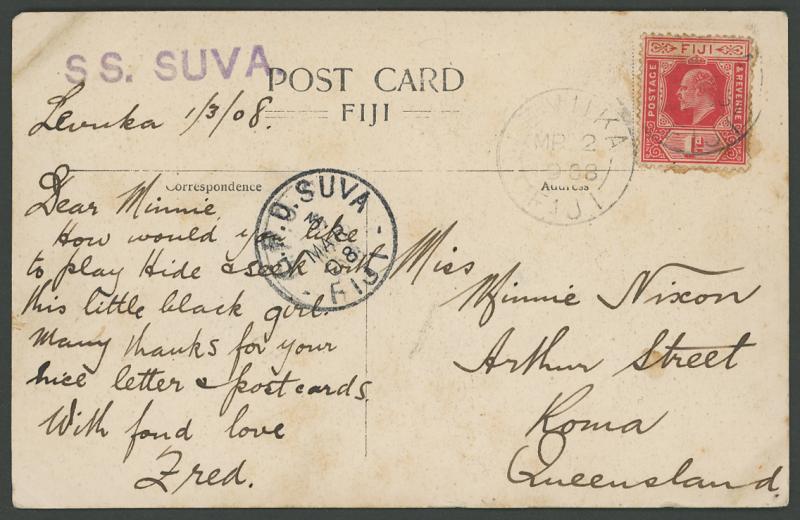 SS. SUVA
POST CARD
FIJI
Levuka 1/3/08.
Correspondence
Address
Dear Minnie,
How would you like
to play Hide & seek with
this little black girl.
Many thanks for your
nice letter & postcards
With fond love
Fred.
Miss
Minnie Nixon
Arthur Street
Roma
Queensland.
FIJI
POSTAGE
& REVENUE
1d
MR 2
FIJI
G.P.O. SUVA
MAR
08
FIJI